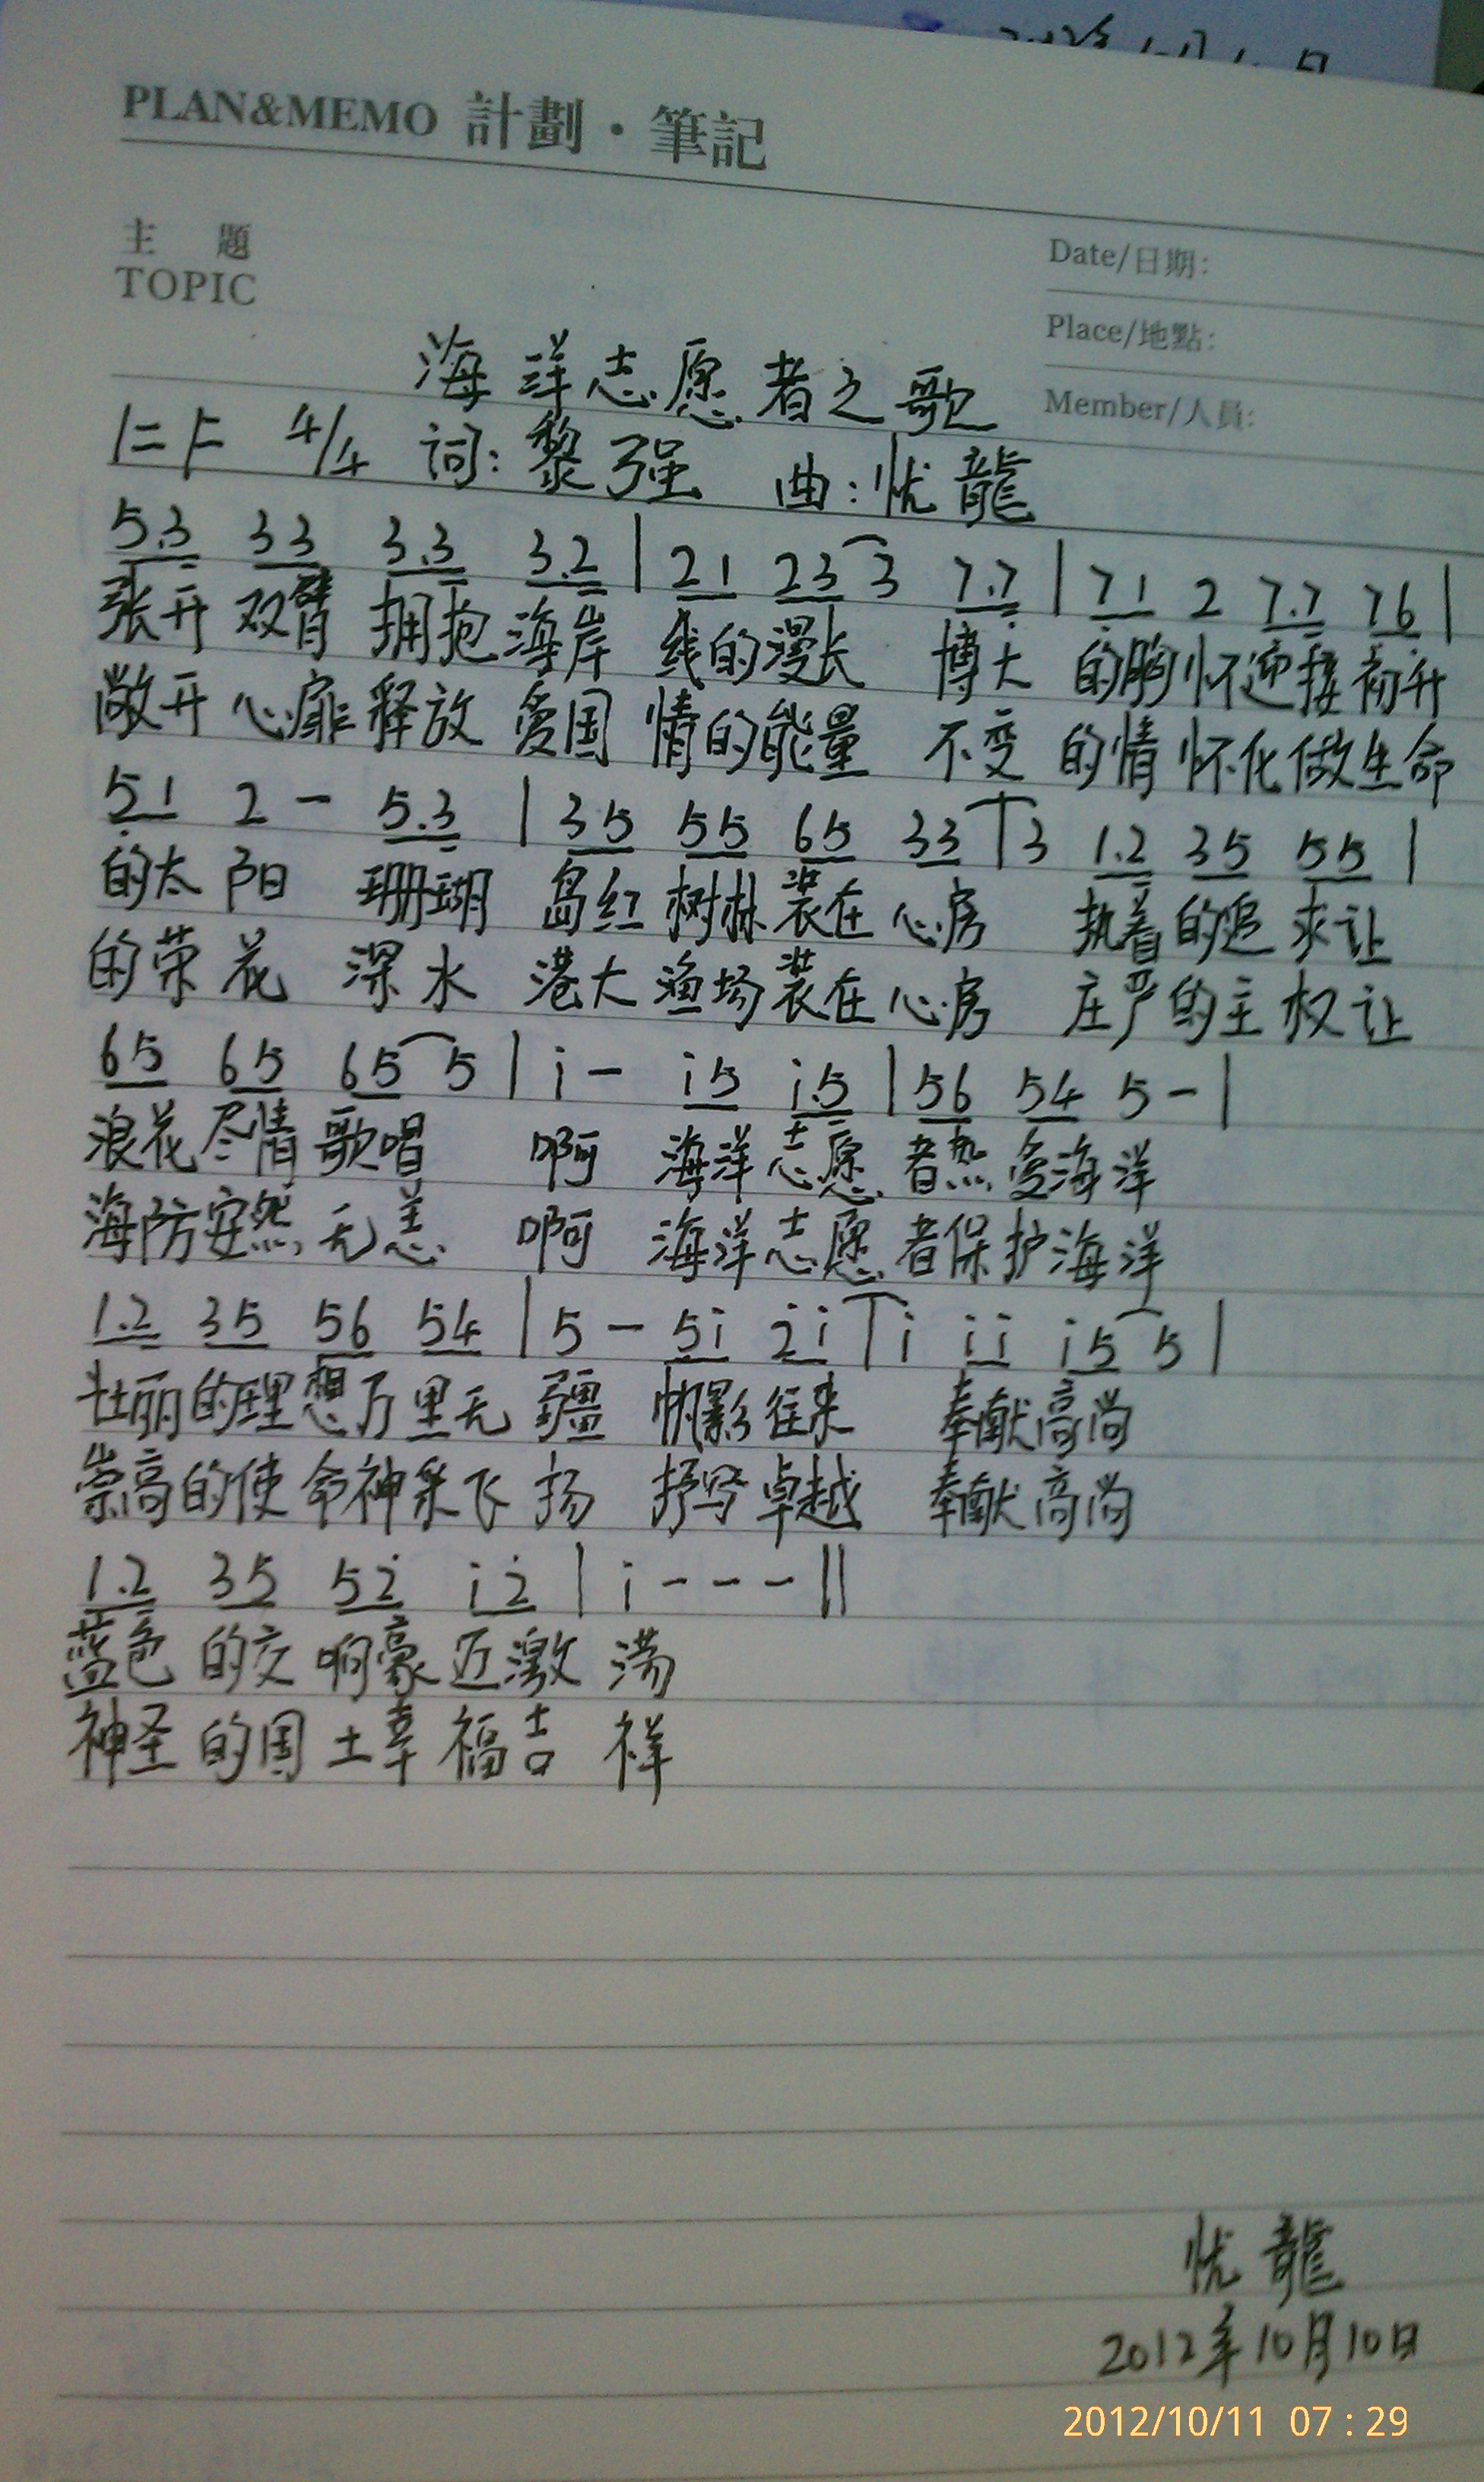 PLAN&MEMO 計劃·筆記
主 題
TOPIC
Date/日期:
Place/地點:
Member/人員:
海洋志愿者之歌
1=F 4/4 词:黎强 曲:忧龍
5.3 33 3.3 3.2 | 21 23 3 7.7 | 71 2 7.7 76 |
张开 双臂 拥抱 海岸 线的漫长 博大 的胸怀迎接初升
敞开心扉释放 爱国 情的能量 不变 的情怀化做生命
51 2 - 5.3 | 35 55 65 33 | 3 1.2 35 55 |
的太阳 珊瑚 岛红树林装在心房 执着的追求让
的荣花 深水 港大渔场装在心房 庄严的主权让
65 65 65 5 | i - i5 i.5 | 56 54 5 - |
浪花尽情歌唱 啊 海洋志愿 者热爱海洋
海防安然无恙 啊 海洋志愿者保护海洋
1.2 35 56 54 | 5 - 5i 2i | i ii i5 5 |
壮丽的理想万里无疆 帆影往来 奉献高尚
崇高的使命神采飞扬 抒写卓越 奉献高尚
1.2 35 52 i2 | i - - - ||
蓝色的交响豪迈激荡
神圣的国土幸福吉祥
忧龍
2012年10月10日
2012/10/11 07:29